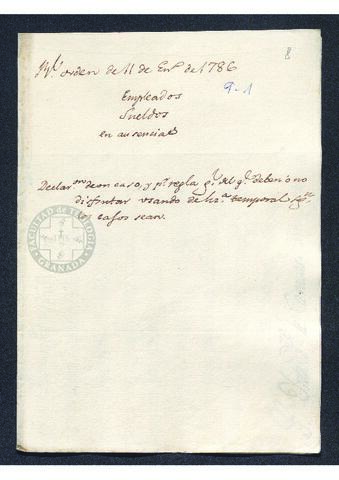 8
Rl. orden de 11 de Eno. de 1786
9-1
Empleados
Sueldos
en ausencias
Declaron. de un caso, y pr. regla gl. del qe. deben o no
disfrutar usando de liza. temporal sgn.
los casos sean.
FACULTAD DE TEOLOGIA
GRANADA